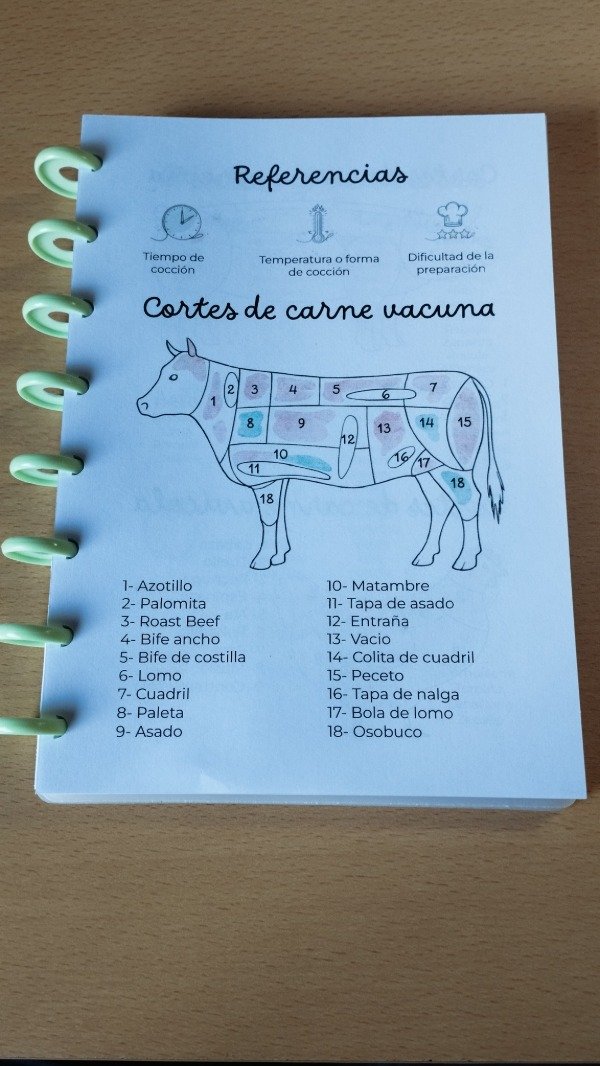 Referencias
Tiempo de
cocción
Temperatura o forma
de cocción
Dificultad de la
preparación
Cortes de carne vacuna
1
2
3
4
5
6
7
8
9
10
11
12
13
14
15
16
17
18
18
1- Azotillo
2- Palomita
3- Roast Beef
4- Bife ancho
5- Bife de costilla
6- Lomo
7- Cuadril
8- Paleta
9- Asado
10- Matambre
11- Tapa de asado
12- Entraña
13- Vacio
14- Colita de cuadril
15- Peceto
16- Tapa de nalga
17- Bola de lomo
18- Osobuco